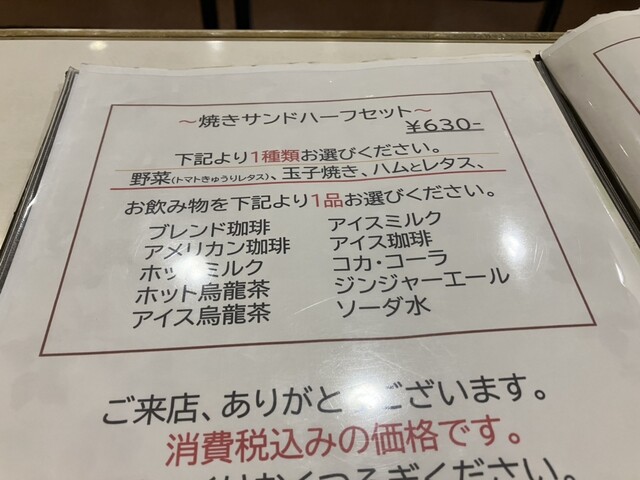 ～焼きサンドハーフセット～
¥630-
下記より1種類お選びください。
野菜(トマトきゅうりレタス)、玉子焼き、ハムとレタス、
お飲み物を下記より1品お選びください。
ブレンド珈琲
アメリカン珈琲
ホットミルク
ホット烏龍茶
アイス烏龍茶
アイスミルク
アイス珈琲
コカ・コーラ
ジンジャーエール
ソーダ水
ご来店、ありがとうございます。
消費税込みの価格です。
くつろぎください。